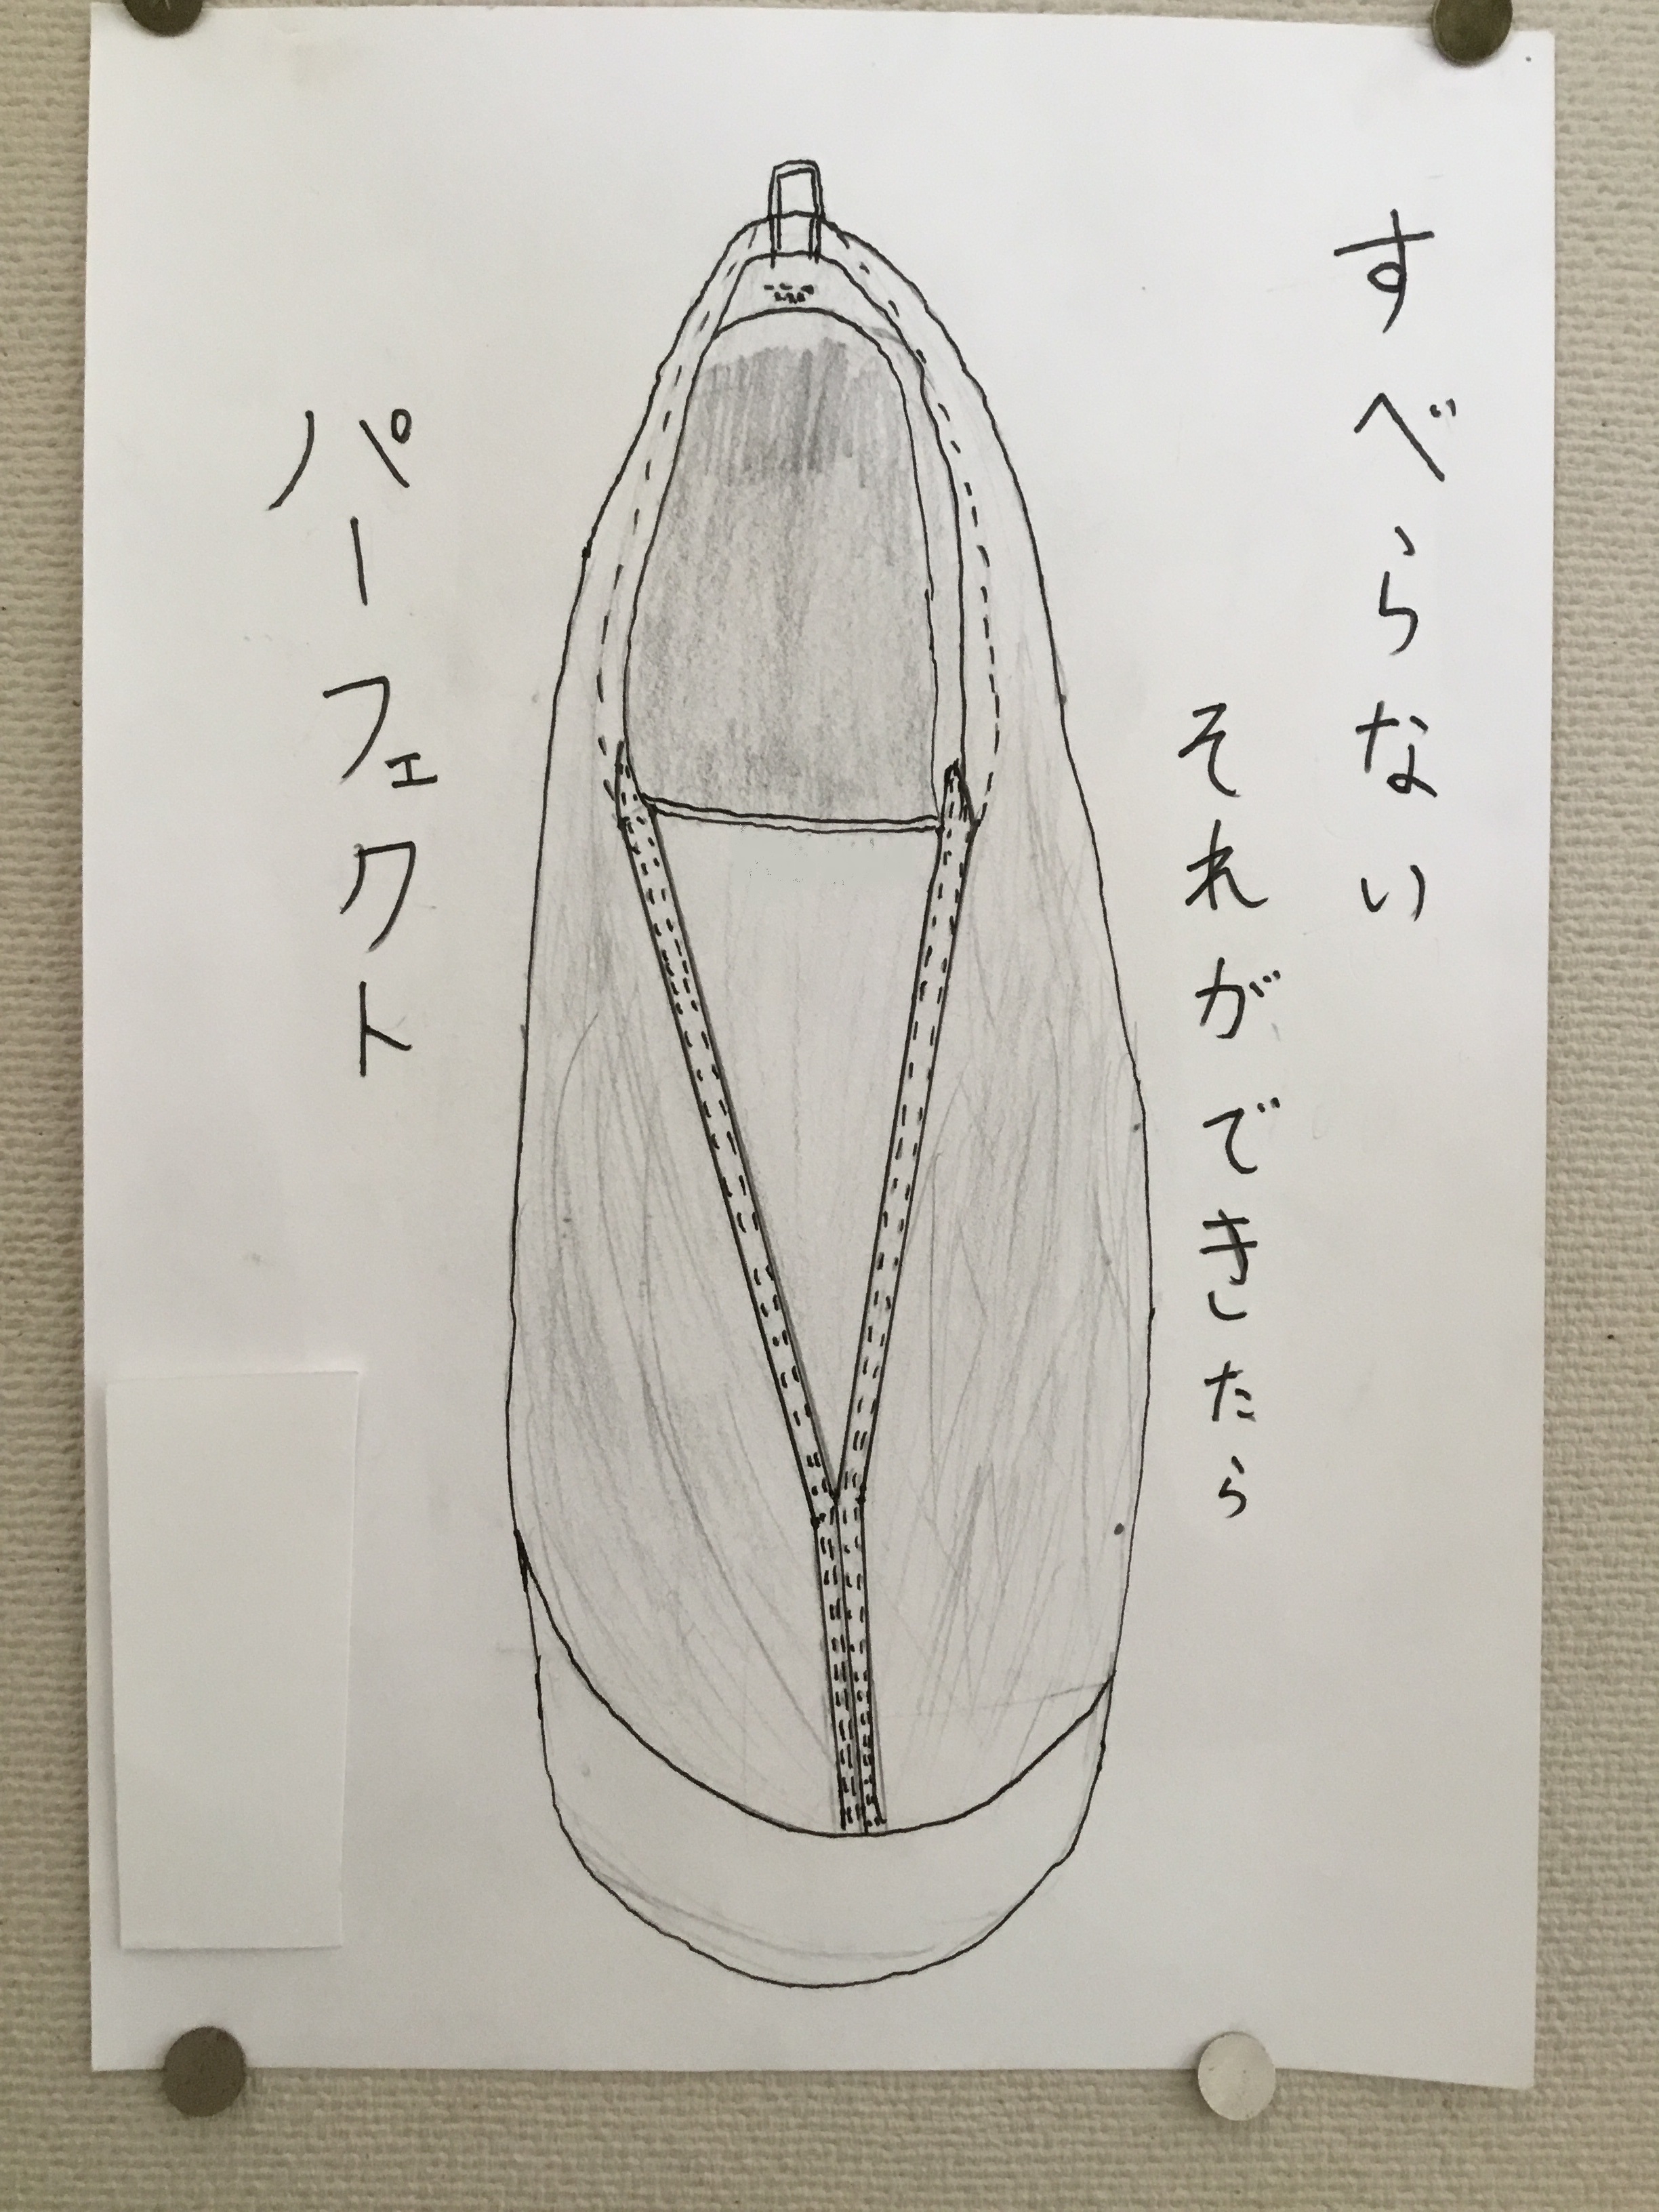 すべらない
それができたら
パーフェクト